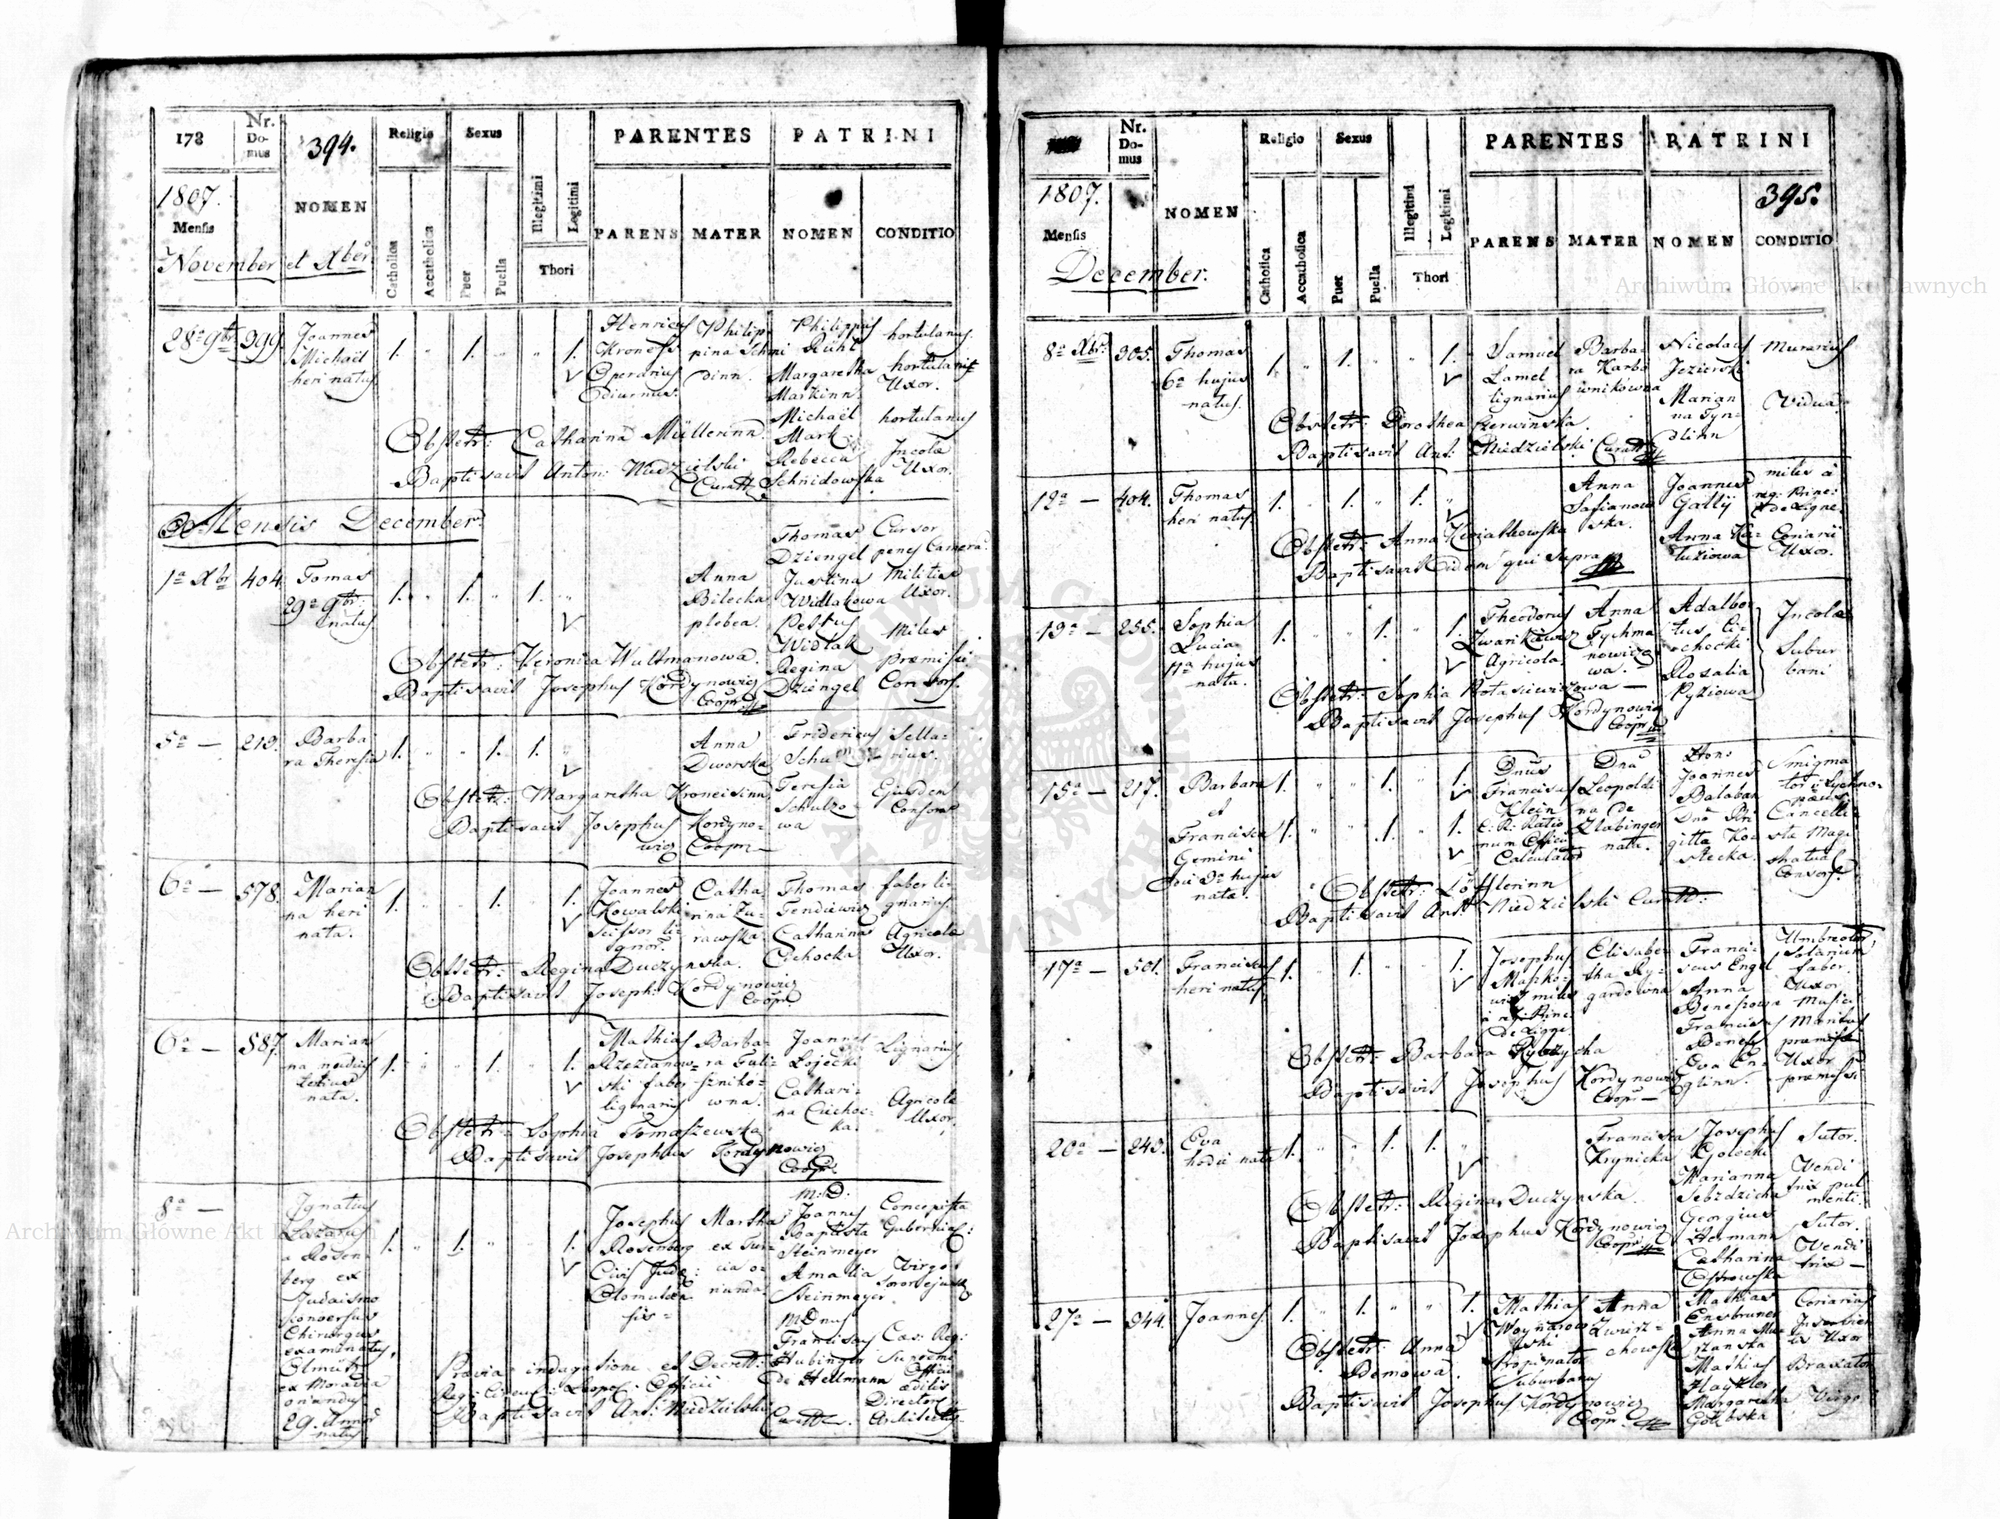 178
Nr. Domus
394.
NOMEN
Religio
Sexus
Catholica
Accatholica
Puer
Puella
Illegitimi
Legitimi
Thori
PARENTES
PATRINI
PARENS
MATER
NOMEN
CONDITIO
1807.
Mensis
November et Xber
28a 9br
399.
Joannes
Michael
heri natus
1. 1. 1.
Henricus
Operarius
diurnus.
Philip-
pina Schmi
dinn.
Philippus
Rühl
Margaretha
Martinn.
Michael
Mark
Rebecca
Schnidowska
hortulanus
hortulani
Uxor.
hortulanus
Incolæ
Uxor.
Obstetr: Catharina Müllerinn.
Baptisavit Anton: Niedzielski
Curatt
Mensis December.
1a Xbr
404.
Tomas
29a 9br:
natus
1. 1. 1.
Anna
Bilecka
plebea.
Thomas
Dziengel
Justina
Widlakowa
Petrus
Widlak
Regina
Dziengel
Cursor
penes Camera.
Militis
Uxor.
Miles
Præmissi
Consors.
Obstetr: Veronica Wultmanowa.
Baptisavit Josephus Kordynowicz
Coopr.
5a —
213.
Barba
ra Theresia
1. 1. 1.
Anna
Dworska
Fridericus
Teresia
Schulzo-
wa
Sella-
rius.
Ejusdem
Consors
Obstetr: Margaretha Kroneisinn.
Baptisavit Josephus Kordyno-
wicz Coopr—
6a —
578.
Marian
na heri
nata.
1. 1. 1.
Joannes
Kowalski
Scissor li
gnor.
Catha
rina Zu-
rawska.
Thomas
Tendiewicz
Catharina
Cichocka
faber li
gnarius
Agricolæ
Uxor.
Obstetr: Regina Duczynska.
Baptisavit Joseph: Kordynowicz
Coopr.
6a —
587.
Marian
na nudius
tertius
nata.
1. 1. 1.
Mathias
Rzezianow-
ski faber
lignarius
Barba-
ra Tuli-
szniko-
wna.
Joannes
Łojecki
Cathari-
na Cichoc-
ka.
Lignarius
Agricolæ
Uxor.
Obstetr: Sophia Tomaszewska
Baptisavit Josephus Kordynowicz
Coopr.
8a —
Ignatius
Lazarus
a Rosen-
berg ex
Judaismo
conversus
Chirurgus
examinatus,
Olmütz
ex Moravia
oriundus
natus
1. 1. 1.
Josephus
Rosenberg
Civis Jude:
Olomucen
sis—
Martha
ex Tur-
cia o-
riunda.
M.D.
Joannes
Baptista
Steinmeyer
Amalia
Steinmeyer.
M.Dnus
Franciscus
Hubinger
de Hellmann
Concepista
Gubernial:
Virgo
soror ejus
Cæs: Reg:
Supremi
Officii
ædilis
Director
Architectus
Prævia indagatione et Decrett:
Baptisavit Ant: Niedzielski
Curatt.
Nr. Domus
395.
NOMEN
Religio
Sexus
Catholica
Accatholica
Puer
Puella
Illegitimi
Legitimi
Thori
PARENTES
PATRINI
PARENS
MATER
NOMEN
CONDITIO
1807.
Mensis
December.
8a Xbr.
305.
Thomas
6a hujus
natus.
1. 1. 1.
Samuel
Lamel
lignarius
Barba-
ra Karb-
ownikówna
Nicolaus
Jezierski
Marian
na Tyn-
dlinn
Murarius
Vidua.
Obstetr: Dorothea Czerwinska.
Baptisavit Ant: Niedzielski Curatt
12a —
404.
Thomas
heri natus.
1. 1. 1.
Anna
Safianow
ska.
Joannes
Gallÿ
Anna Ka-
luziowa
miles à
reg: Princ:
de Ligne.
Coriarii
Uxor.
Obstetr: Anna Kosialkowska
Baptisavit Eidem qui supra
13a —
255.
Sophia
Lucia
11a hujus
nata.
1. 1. 1.
Theodorus
Zwarikiewicz
Agricola
Anna
Tychma
nowiczo
wa.
Adalber
tus Ci-
chocki
Rosalia
Ryziowa
Incolæ
Subur
bani
Obstetr: Sophia Rotasiewiczowa —
Baptisavit Josephus Kordynowicz
Coopr
15a —
217.
Barbara
et
Francisca
Gemini
hujus
natæ.
1. 1. 1.
1. 1. 1.
Dnus
Franciscus
Klein
C: R: Ratio
num Offici
Calculator
Dna
Leopoldi
na de
Zlabinger
nata.
Hon:
Joannes
Balaban
Dna Bri
gitta Kos
stecka.
Cancelli-
stæ Magi
stratual:
Consors.
Obstetr: Löfflerinn
Baptisavit Ant: Niedzielski Curatt:
17a —
501.
Franciscus
heri natus.
1. 1. 1.
Josephus
Maśko-
wicz miles
à reg: Princ:
De Ligne.
Elisabe-
tha Ry-
gardowna
Franci-
scus Engel
Anna
Beneszowa
Franciscus
Benesz
Eva En
glinn.
faber.
Uxor
Musici
Maritus
præmissæ
Uxor
præmissi
Obstetr: Barbara Rybzycha
Baptisavit Josephus Kordynowicz
Coopr—
20a —
243.
Eva
hodie nata
1. 1. 1.
Francisca
Krynicka
Josephus
Golecki
Marianna
Sebzdzicha
Georgius
Hermann
Catharina
Ostrowska
Sutor.
Vendi
trix pul
menti.
Sutor.
Vendi
trix —
Obstetr: Regina Duczynska.
Baptisavit Josephus Kordynowicz
Coopr
27a —
344.
Joannes.
1. 1. 1.
Mathias
Woynarow
ski
Propinator
Suburbanus
Anna
Mathias
Ensbruner
Anna Mu-
rzanska
Mathias
Haykler
Margaretha
Gołębska
Coriarius
Uxor
Braxator
Virgo
Obstetr: Anna
Demowa.
Baptisavit Josephus Kordynowicz
Coopr.
Archiwum Główne Akt Dawnych
Archiwum Główne Akt Dawnych